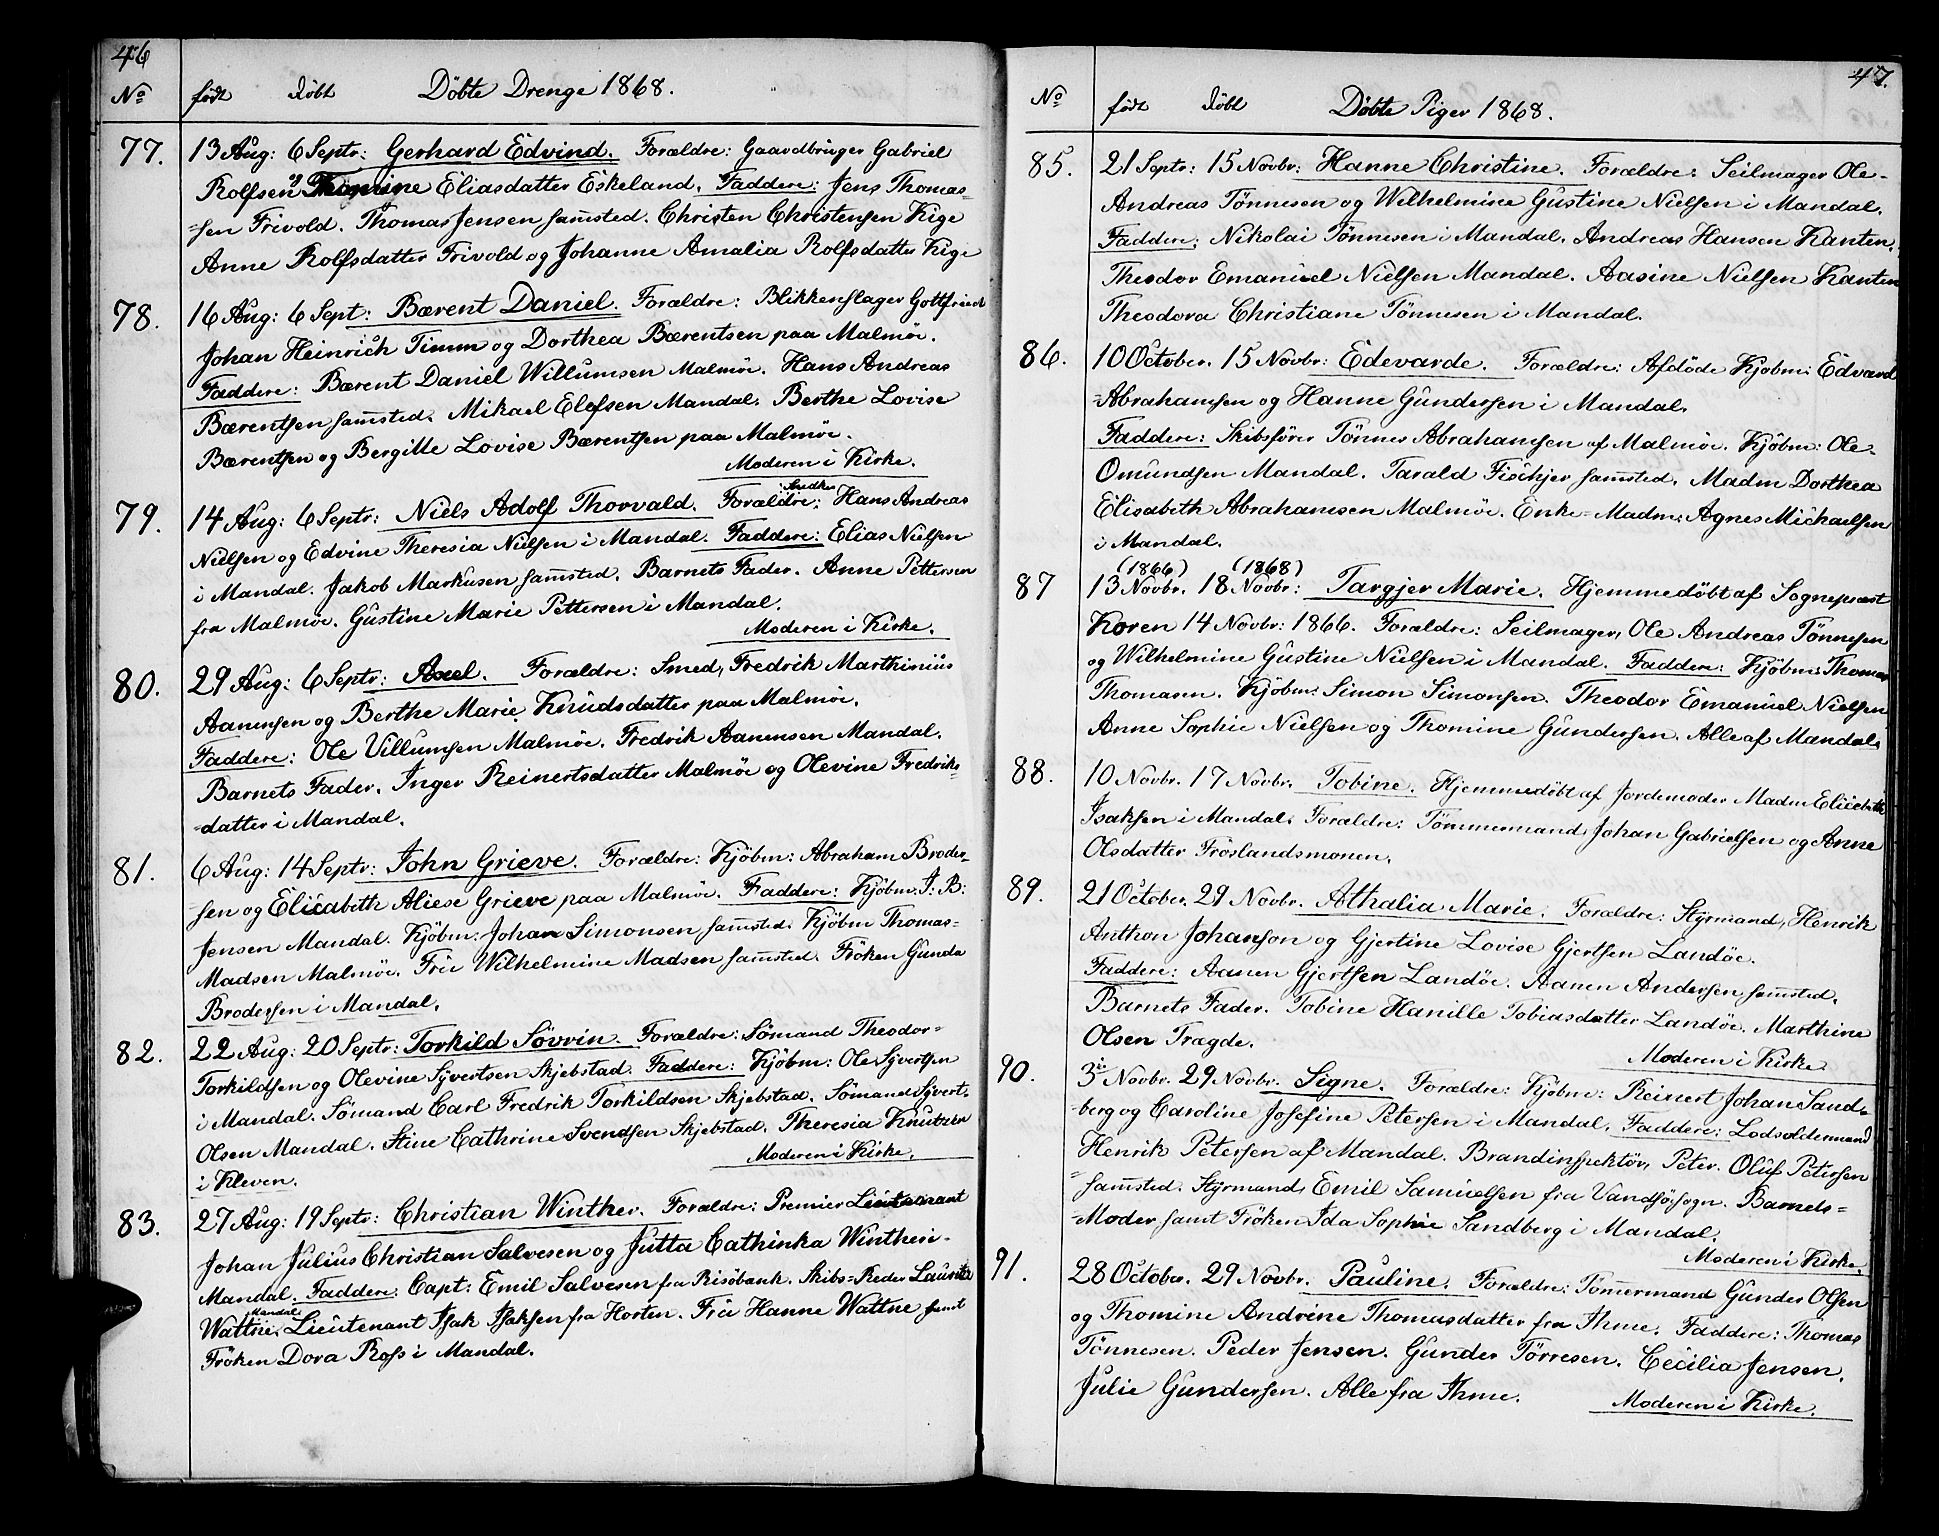 46
No født døbt Döbte Drenge 1868.
77. 13 Aug: 6 Septr: Gerhard Edvind. Forældre: Gaardbruger Gabriel
Rolfsen og Thomine Eliasdatter Eskeland. Faddere: Jens Thomas=
=sen Frivold. Thomas Jensen sam̄sted. Christen Christensen Kige
Anne Rolfsdatter Frivold og Johanne Amalia Rolfsdatter Kige
78. 16 Aug: 6 Sept: Bærent Daniel. Forældre: Blikkenslager Gottfriedt
Johan Heinrich Timm og Dorthea Bærentsen paa Malmöe.
Faddere: Bærent Daniel Willumsen Malmöe. Hans Andreas
Bærentsen sam̄sted. Mikael Elefsen Mandal. Berthe Lovise
Bærentsen og Bergitte Lovise Bærentsen paa Malmöe.
Moderen i Kirke.
79. 14 Aug: 6 Septr: Niels Adolf Thorvald. Forældre: Snedker Hans Andreas
Nielsen og Edvine Theresia Nielsen i Mandal. Faddere: Elias Nielsen
i Mandal. Jakob Markusen sam̄sted. Barnets Fader. Anne Pettersen
fra Malmöe. Gustine Marie Pettersen i Mandal.
Moderen i Kirke.
80. 29 Aug: 6 Septr: Axel. Forældre: Smed, Fredrik Marthinius
Aanensen og Berthe Marie Knudsdatter paa Malmöe.
Faddere: Ole Villumsen Malmöe. Fredrik Aanensen Mandal.
Barnets Fader. Inger Reinertsdatter Malmöe og Olevine Fredriks=
=datter i Mandal.
81. 6 Aug: 14 Septr: John Grieve. Forældre: Kjöbm: Abraham Broder=
=sen og Elisabeth Aliese Grieve paa Malmöe. Faddere: Kjöbm: J: B:
Jensen Mandal. Kjöbm: Johan Simonsen sam̄sted. Kjöbm Thomas=
Madsen Malmöe. Frü Wilhelmine Madsen sam̄sted. Fröken Gunda
Brodersen i Mandal.
82. 22 Aug: 20 Septr: Torkild Sövrin. Forældre: Sömand Theodor=
Torkildsen og Olevine Syvertsen Skjebstad. Faddere: Kjöbm: Ole Syvertsen
i Mandal. Sömand Carl Fredrik Torkildsen Skjebstad. Sömand Syvert=
Olsen Mandal. Stine Cathrine Svendsen Skjebstad. Theresia Knutzen
i Kleven. Moderen i Kirke.
83. 27 Aug: 19 Septr: Christian Winther. Forældre: Premier Lieutenant
Johan Julius Christian Salvesen og Jutta Cathinka Winther i-
Mandal. Faddere: Capt: Emil Salvesen fra Risöbank. Skibs=Reder Lauritz
Wattne, Mandal Lieutenant Isak Isaksen fra Horten. Frü Hanne Wattne samt
Fröken Dora Ross i Mandal.
47.
No født døbt Döbte Piger 1868.
85. 21 Septr: 15 Novbr: Hanne Christine. Forældre: Seilmager Ole-
Andreas Tönnesen og Wilhelmine Gustine Nielsen i Mandal.
Faddere: Nikolai Tönnesen i Mandal. Andreas Hansen Kanten.
Theodor Emanuel Nielsen Mandal. Aasine Nielsen Kanten
Theodora Christiane Tönnesen i Mandal.
86. 10 October. 15 Novbr: Edevarde. Forældre: Afdöde Kjöbm: Edvard
=Abrahamsen og Hanne Gundersen i Mandal.
Faddere: Skibsförer Tönnes Abrahamsen af Malmöe. Kjöbm: Ole-
Omundsen Mandal. Tarald Fiskjer sam̄sted. Madm Dorthea
Elisabeth Abrahamsen Malmöe. Enke=Madm: Agnes Michaelsen
i Mandal.
(1866) (1868)
87 13 Novbr. 18 Novbr: Targjer Marie. Hjemmedöbt af Sognepræst
Koren 14 Novbr: 1866. Forældre: Seilmager, Ole Andreas Tönnesen
og Wilhelmine Gustine Nielsen i Mandal. Faddere: Kjöbm: Thomas
Thomann. Kjöbm: Simon Simonsen. Theodor Emanuel Nielsen
Anne Sophie Nielsen og Thomine Gundersen. Alle af Mandal.
88. 10 Novbr. 17 Novbr. Tobine. Hjemmedöbt af Jordemoder Madm Elisabeth
Isaksen i Mandal. Forældre: Tömmermand, Johan Gabrielsen og Anne
Olsdatter Fröslandsmonen.
89. 21 October. 29 Novbr. Athalia Marie. Forældre: Styrmand, Henrik
Anthon Johanson og Gjertine Lovise Gjertsen Landöe.
Faddere: Aanen Gjertsen Landöe. Aanen Andersen sam̄sted.
Barnets Fader. Tobine Hanille Tobiasdatter Landöe. Marthine
Olsen Trægde.
Moderen i Kirke
90. 3die Novbr. 29 Novbr. Signe. Forældre: Kjöbm: Reinert Johan Sand=
=berg og Caroline Josefine Petersen i Mandal. Faddere: Lodsoldermand
Henrik Petersen af Mandal. Brandinspektör, Peter. Oluf Petersen
=sam̄sted. Styrmand, Emil Samuelsen fra Vandsösogn. Barnets=
=Moder samt Fröken Ida Sophie Sandberg i Mandal.
Moderen i Kirke.
91. 28 October. 29 Novbr. Pauline. Forældre: Töm̄ermand Gunder Olsen
og Thomine Andrine Thomasdatter fra Ihme. Faddere: Thomas
Tönnesen. Peder Jensen. Gunder Törresen. Cecilia Jensen.
Julie Gundersen. Alle fra Ihme. Moderen i Kirke.